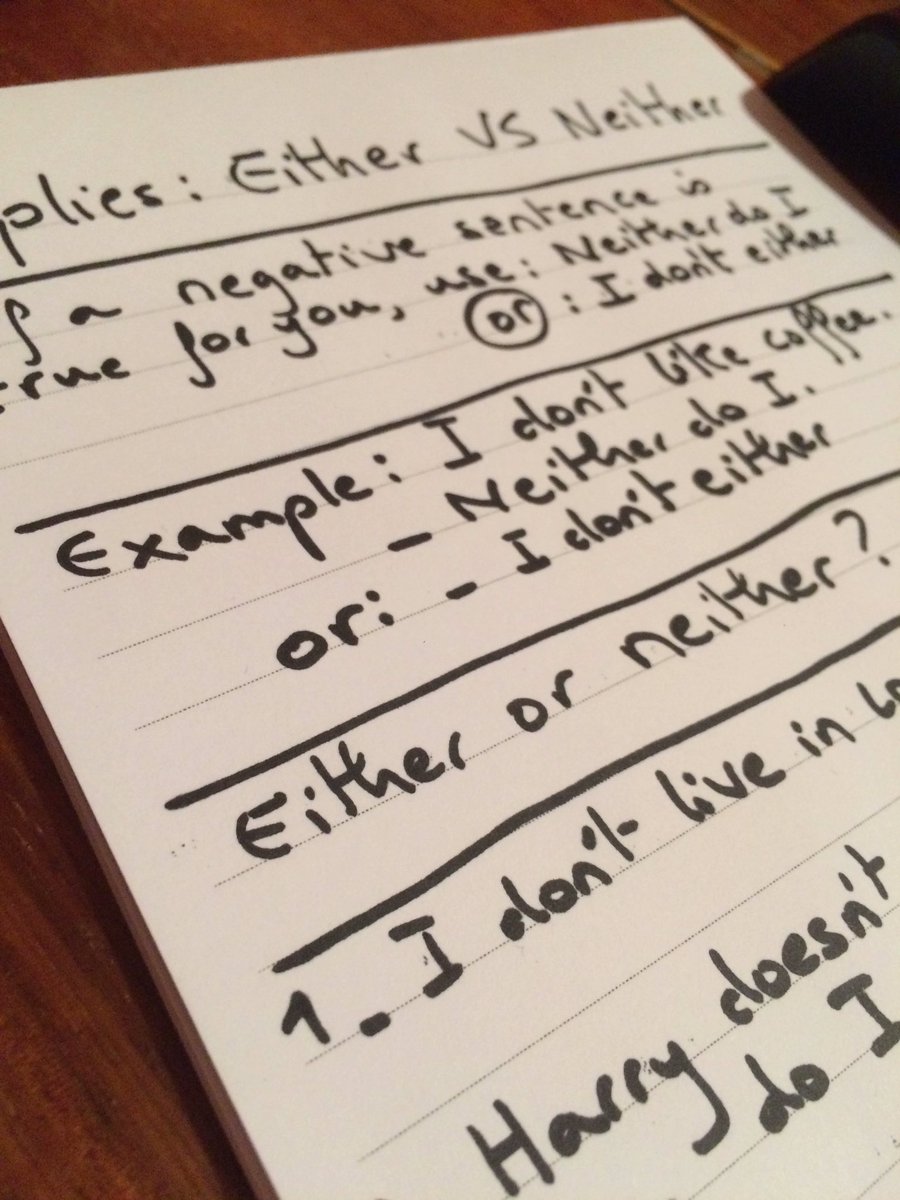 plies: Either VS Neither
f a negative sentence is
true for you, use: Neither do I
or : I don't either
Example: I don't like coffee.
- Neither do I.
or: - I don't either
Either or neither?
1_ I don't live in
Harry doesn't
do I